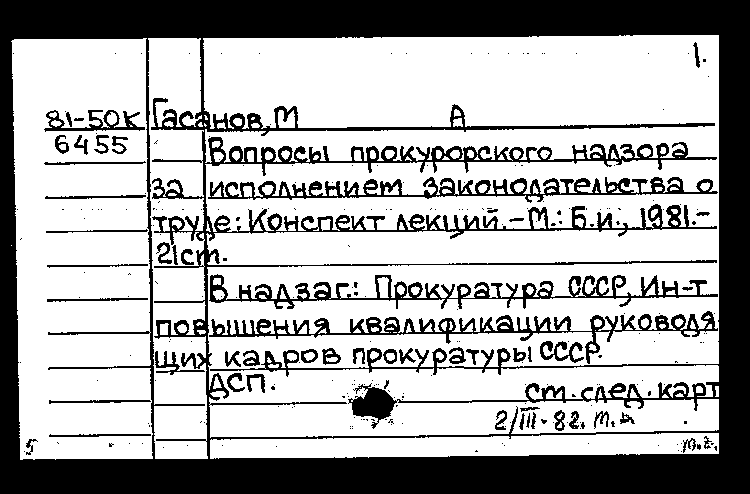 1.
81-50К Гасанов, М А
6455 Вопросы прокурорского надзора
за исполнением законодательства о
труде: Конспект лекций. – М.: Б.и., 1981.–
21ст.
В надзаг.: Прокуратура СССР, Ин-т
повышения квалификации руководя
щих кадров прокуратуры СССР.
ДСП.
ст. след. карт
2/III-82.
5